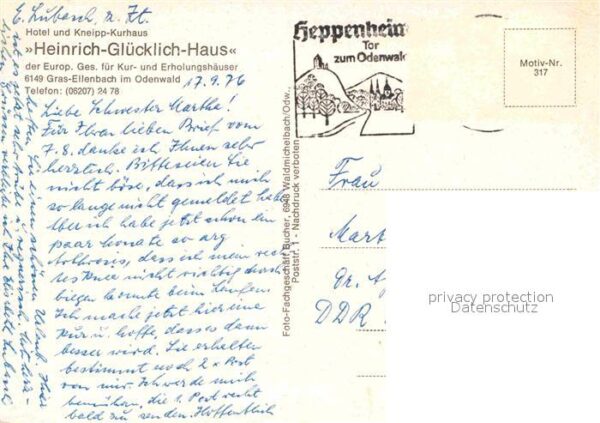 E. Lubasch, z. Zt.
Hotel und Kneipp-Kurhaus
»Heinrich-Glücklich-Haus«
der Europ. Ges. für Kur- und Erholungshäuser
6149 Gras-Ellenbach im Odenwald
Telefon: (06207) 24 78
17.9.76
Liebe Schwester Martha!
Für Ihren lieben Brief vom
7.8. danke ich Ihnen sehr
herzlich. Bitte seien Sie
nicht böse, dass ich mich
so lange nicht gemeldet habe
Aber ich habe jetzt schon ein
paar Monate so arg
Arthrose, dass ich mein rech-
tes Knie nicht richtig durch-
biegen konnte beim Laufen.
Ich mache jetzt hier eine
Kur u. hoffe, dass es dann
besser wird. Sie erhalten
bestimmt noch 2 x Post
von mir. Ich werde mich
bemühen, die 1. Post recht
bald zu senden. Hoffentlich
hatten Sie einen schönen Urlaub. Hier
ist es jetzt sehr trübe u. regnerisch. Mit herz-
lichen Grüssen verbleibe ich Ihre Elisabeth Lubasch
Foto-Fachgeschäft Bucher, 6948 Waldmichelbach/Odw.,
Poststr. 1 - Nachdruck verboten
Heppenheim
Tor
zum Odenwald
Motiv-Nr.
317
Frau
Mart
Dr.
DDR
privacy protection
Datenschutz